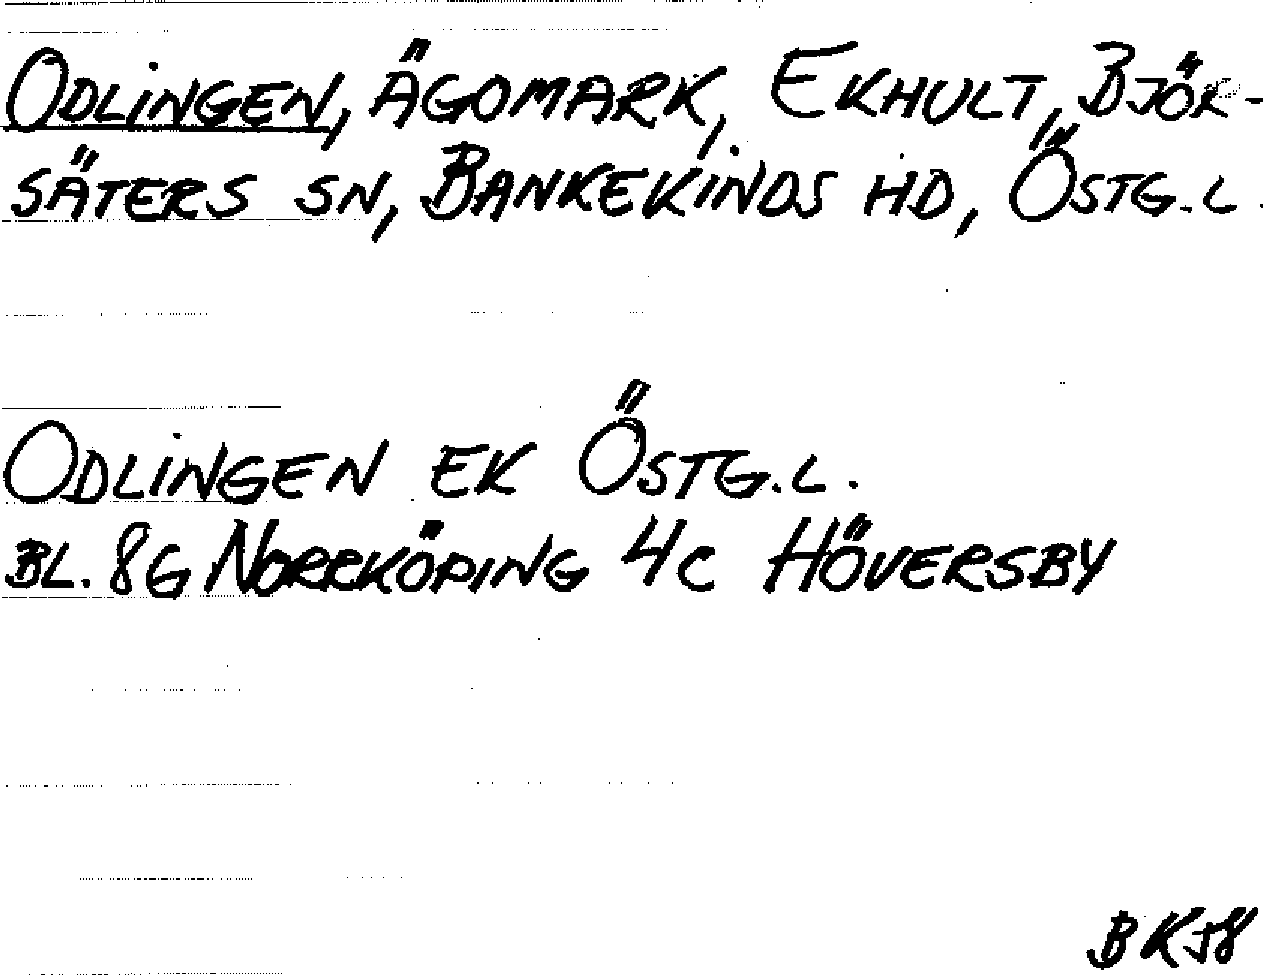 ODLINGEN, ÄGOMARK, EKHULT, BJÖR-
SÄTERS SN, BANKEKINDS HD, ÖSTG. L.
ODLINGEN EK ÖSTG. L.
BL. 8G NORRKÖPING 4C HÖVERSBY